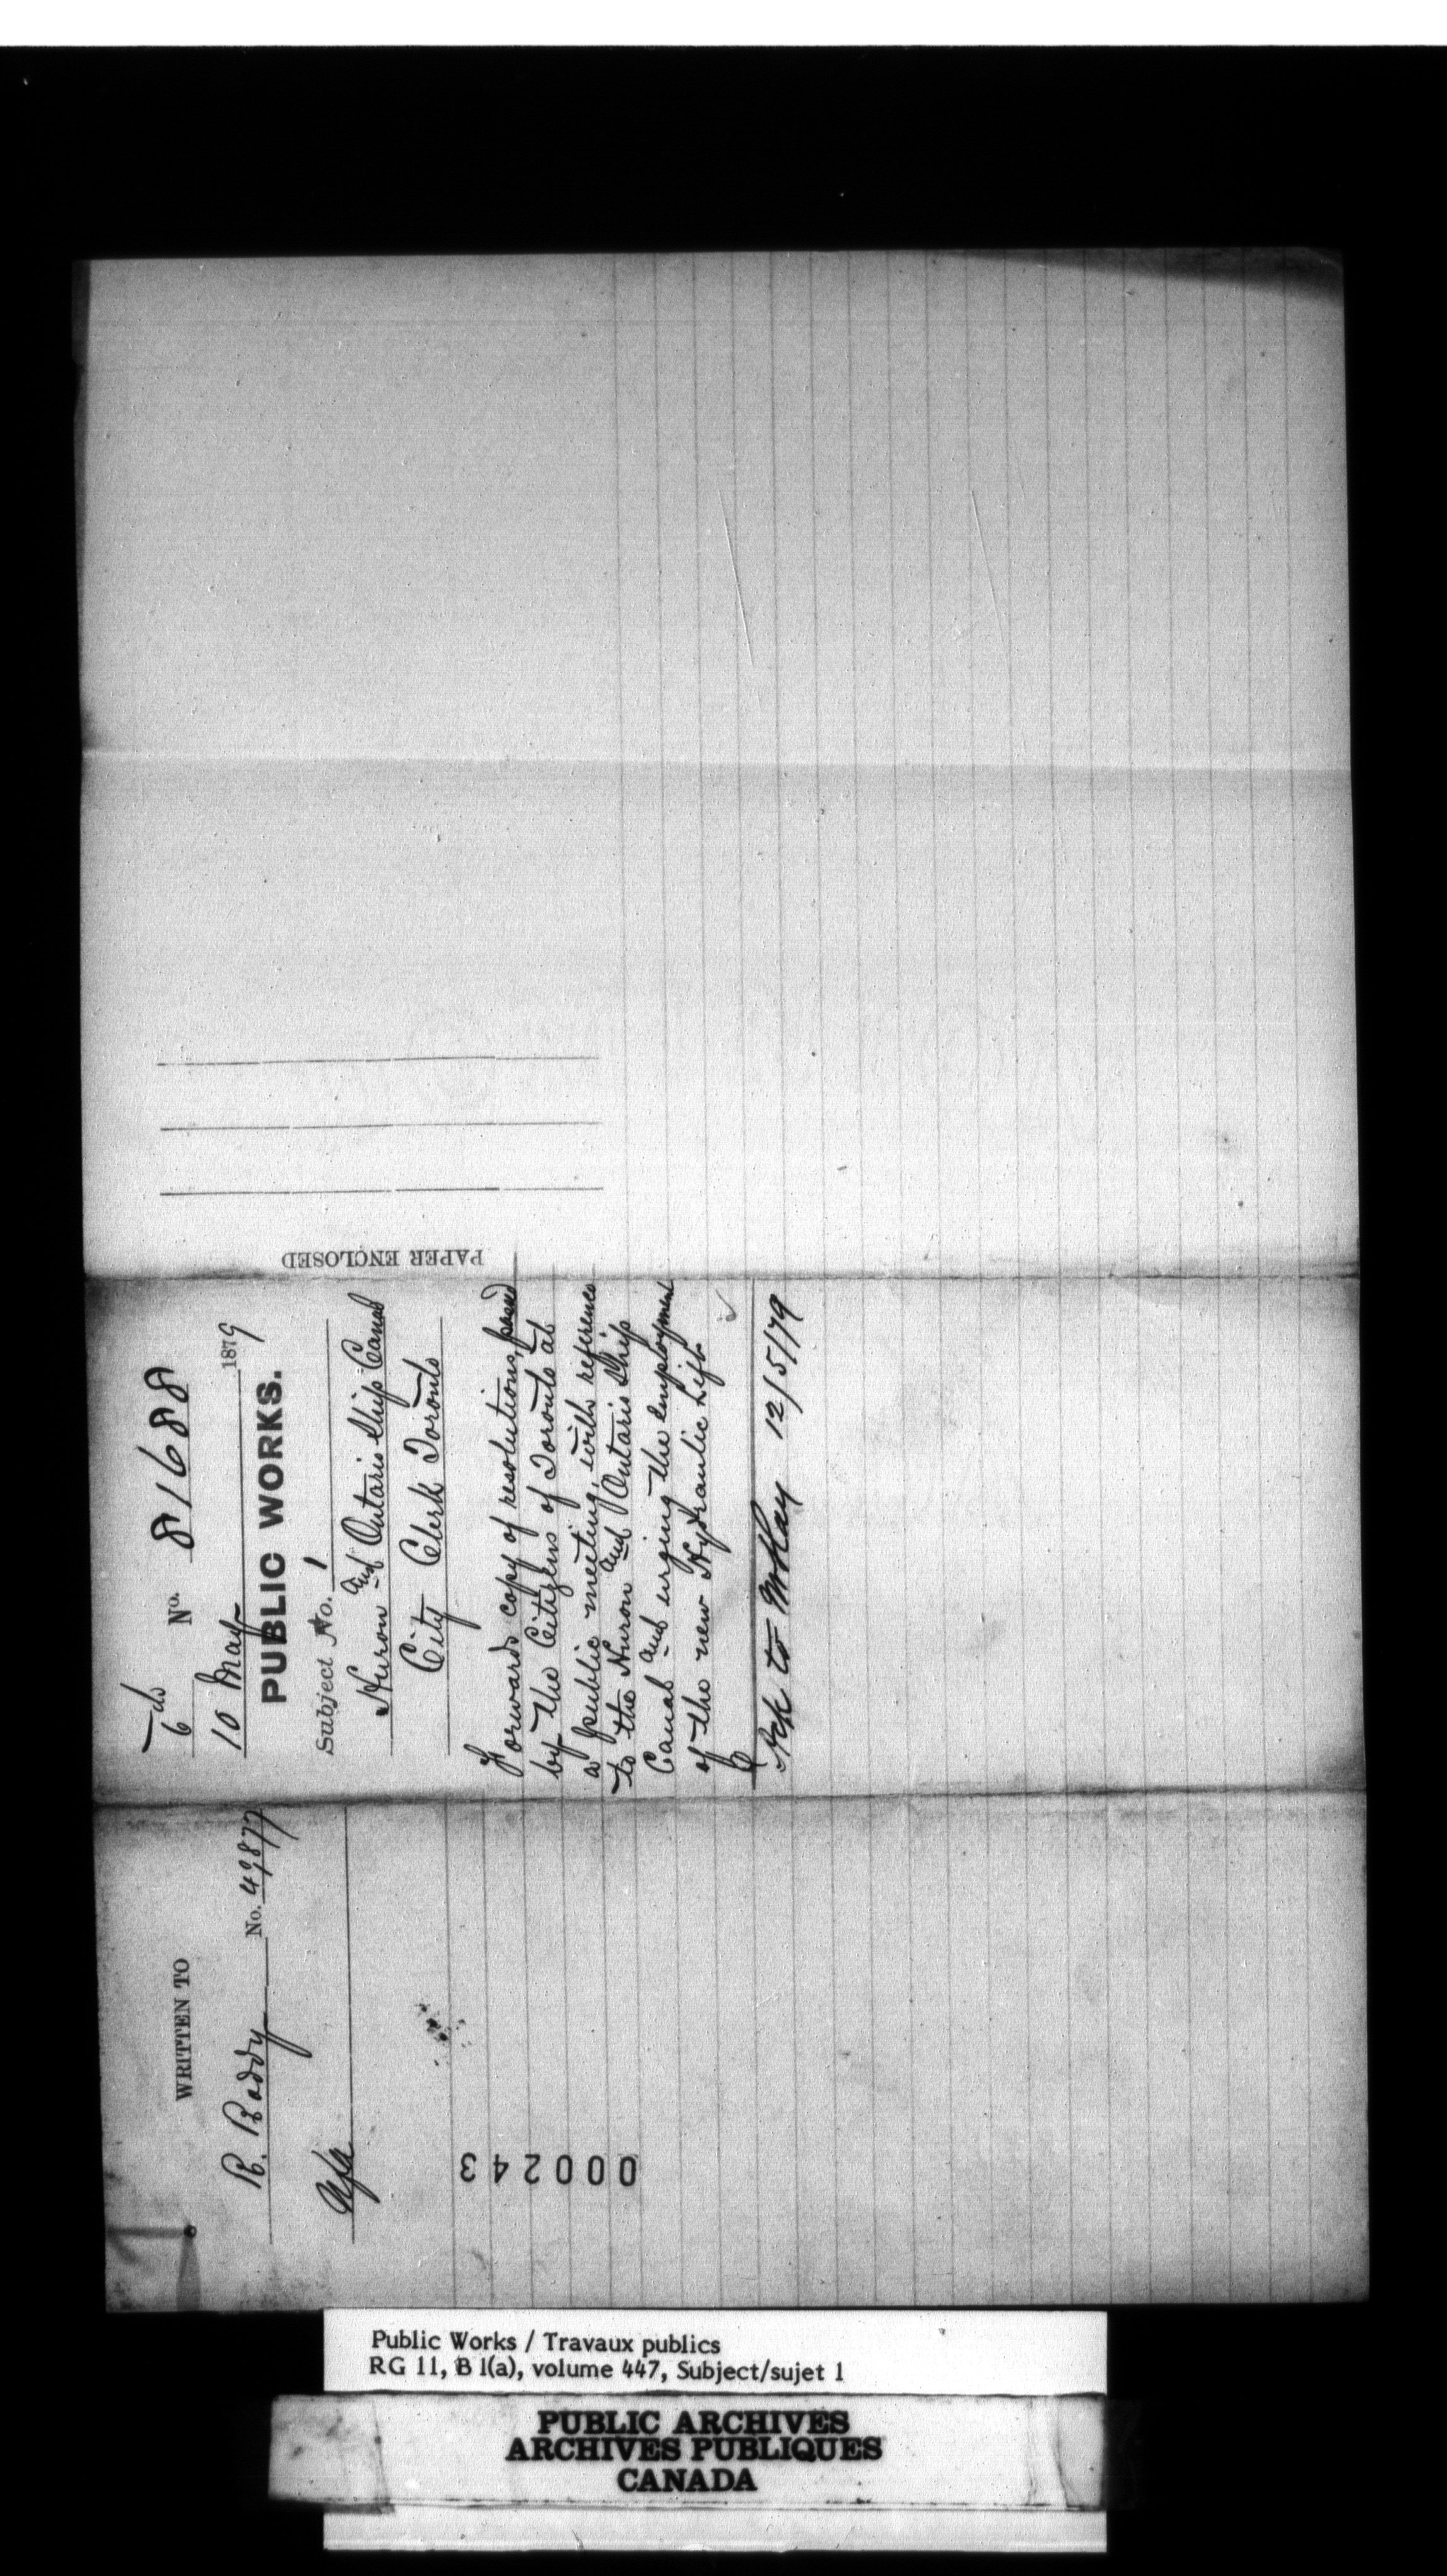 WRITTEN TO
R. Roddy No. 49877
6 No. 81688
10 May 1879
PUBLIC WORKS.
Subject No. 1
Huron and Ontario Ship Canal
City Clerk Toronto
Forwards copy of resolutions, passed
by the Citizens of Toronto at
a public meeting, with reference
to the Huron and Ontario Ship
Canal and urging the employment
of the new Hydraulic Lift
Ack to 12/5/79
PAPER ENCLOSED
000243
Public Works / Travaux publics
RG 11, B 1(a), volume 447, Subject/sujet 1
PUBLIC ARCHIVES
ARCHIVES PUBLIQUES
CANADA